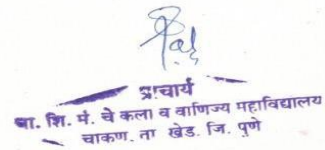 प्राचार्य
शि. मं. चे कला व वाणिज्य महाविद्यालय
चाकण. ता खेड. जि. पुणे